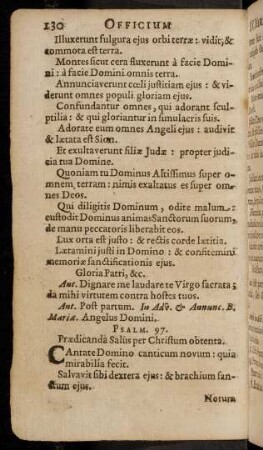 130 OFFICIUM
Illuxerunt fulgura ejus orbi terræ: vidit, &
commota est terra.
Montes sicut cera fluxerunt à facie Domi-
ni: à facie Domini omnis terra.
Annunciaverunt cœli justitiam ejus: & vi-
derunt omnes populi gloriam ejus.
Confundantur omnes, qui adorant sculp-
ptilia: & qui gloriantur in simulacris suis.
Adorate eum omnes Angeli ejus: audivit
& lætata est Sion.
Et exultaverunt filiæ Judæ: propter judi-
cia tua Domine.
Quoniam tu Dominus Altissimus super o-
mnem terram: nimis exaltatus es super om-
nes Deos.
Qui diligitis Dominum, odite malum:
custodit Dominus animas Sanctorum suorum,
de manu peccatoris liberabit eos.
Lux orta est justo: & rectis corde lætitia.
Lætamini justi in Domino: & confitemini
memoriæ sanctificationis ejus.
Gloria Patri, &c.
Ant. Dignare me laudare te Virgo sacrata;
da mihi virtutem contra hostes tuos.
Ant. Post partum. In Adv. & Annunc. B.
Mariæ. Angelus Domini.
PSALM. 97.
Prædicanda Salus per Christum obtenta.
CAntate Domino canticum novum: quia
mirabilia fecit.
Salvavit sibi dextera ejus: & brachium san-
ctum ejus.
Notum